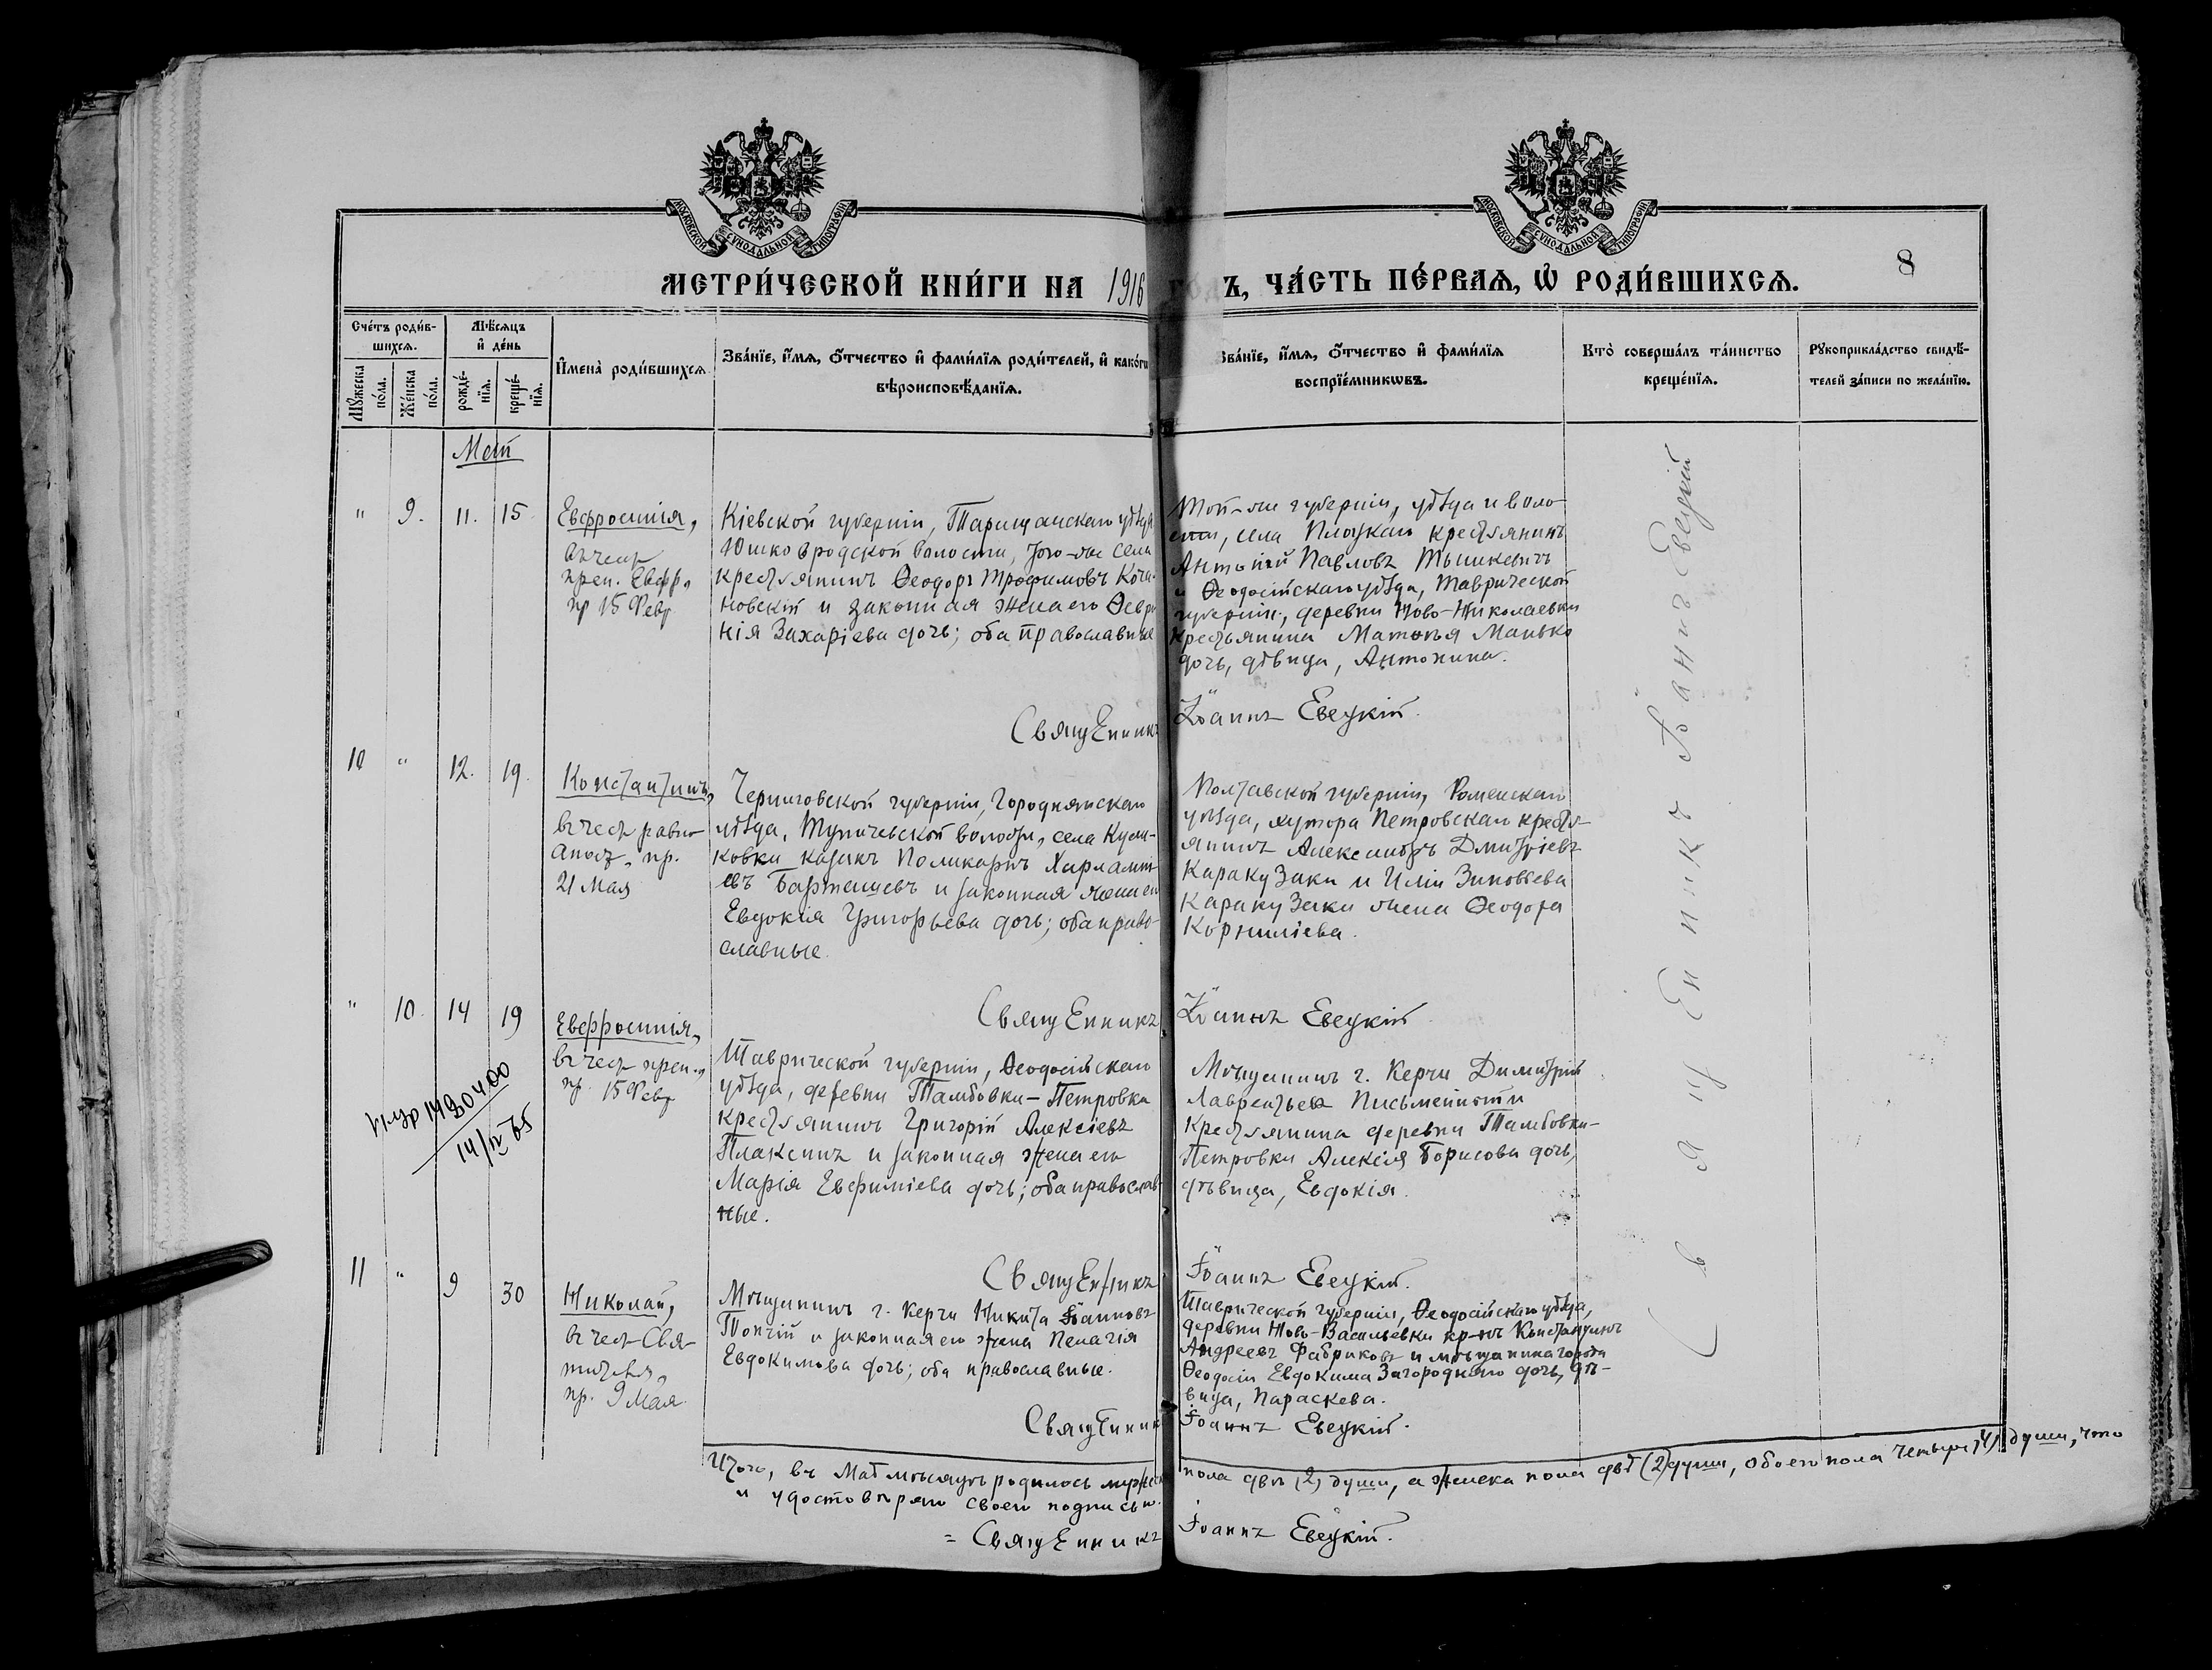 МОСКОВСКОЙ СУНОДАЛЬНОЙ ТИПОГРАФІИ
МОСКОВСКОЙ СУНОДАЛЬНОЙ ТИПОГРАФІИ
8
МЕТРИ́ЧЕСКОЙ КНИ́ГИ НА 1916 ГОДЪ, ЧА́СТЬ ПЕ́РВАѦ, Ѡ҆ РОДИ́ВШИХСѦ.
Сче́тъ роди́в-
шихсѧ.
Мꙋ́жеска по́ла.
Же́нска по́ла.
Мѣ́сѧцъ
и҆ де́нь
рожде́-
нїѧ.
креще́-
нїѧ.
И҆мена̀ роди́вшихсѧ
Зва́нїе, и҆́мѧ, ѻ҆́тчество и҆ фами́лїѧ роди́телей, и҆ како́гѡ
вѣроисповѣ́данїѧ.
Зва́нїе, и҆́мѧ, ѻ҆́тчество и҆ фами́лїѧ
воспрїе́мникѡвъ.
Кто̀ соверша́лъ та́инство
креще́нїѧ.
Рꙋкоприкла́дство свидѣ́-
телей за́писи по жела́нїю.
Май
" 9. 11. 15
Евфросинія,
въ честь
преп. Евфр.,
пр 15 Февр
Кіевской губерніи, Таращанскаго уѣзда
Юшковродской волости, того-же села
крестьянинъ Ѳеодоръ Трофимовъ Коча-
новскій и законная жена его Февро
нія Захаріева дочь; оба православные
Той-же губерніи, уѣзда и воло-
сти, села Плоскаго крестьянинъ
Антоній Павловъ Тышкевичъ
и Ѳеодосійскаго уѣзда, Таврической
губерніи, деревни Ново-Николаевки
крестьянина Матѳея Манько
дочь, дѣвица, Антонина.
СвящЕнникъ Іоаннъ Евецкій.
10 " 12. 19.
Константинъ,
въ честь равно
апост., пр.
21 Мая
Черниговской губерніи, Городнянскаго
уѣзда, Тупичевской волости, села Кули-
ковки казакъ Поликарпъ Харлампі-
евъ Барташевъ и законная жена его
Евдокія Григорьева дочь; оба право-
славные.
Полтавской губерніи, Роменскаго
уѣзда, хутора Петровскаго кресть-
янинъ Александръ Дмитріевъ
Каракузаки и Иліи Зиновьева
Каракузаки жена Ѳеодора
Корниліева.
СвящЕнникъ Іоаннъ Евецкій
" 10. 14 19
Евфросинія,
въ честь преп.,
пр. 15 Февр
Таврической губерніи, Ѳеодосійскаго
уѣзда, деревни Тамбовки-Петровка
крестьянинъ Григорій Алексіевъ
Плаксинъ и законная жена его
Марія Евфиміева дочь; оба православ-
ные.
Мѣщанинъ г. Керчи Димитрій
Лаврентьевъ Письменный и
крестьянина деревни Тамбовки-
Петровки Алексія Борисова дочь,
дѣвица, Евдокія.
14/IV 65
СвящЕнникъ Іоаннъ Евецкій.
11 " 9 30
Николай,
въ честь Свя-
тителя,
пр. 9 Мая
Мѣщанинъ г. Керчи Никита Іоанновъ
Топчій и законная его жена Пелагія
Евдокимова дочь; оба православные.
Таврической губерніи, Ѳеодосійскаго уѣзда,
деревни Ново-Васильевки кр-нъ Константинъ
Андреевъ Фабриковъ и мѣщанина города
Ѳеодосіи Евдокима Загороднаго дочь, дѣ-
вица, Параскева.
СвящЕнникъ Іоаннъ Евецкій.
СвящЕнникъ Іоаннъ Евецкій
Итого, въ Маѣ мѣсяцѣ родилось мужеска пола двѣ (2) души, а женска пола двѣ (2) души, обоего пола четыре (4) души, что
и удостовѣряю своею подписью.
= СвящЕнникъ Іоаннъ Евецкій.